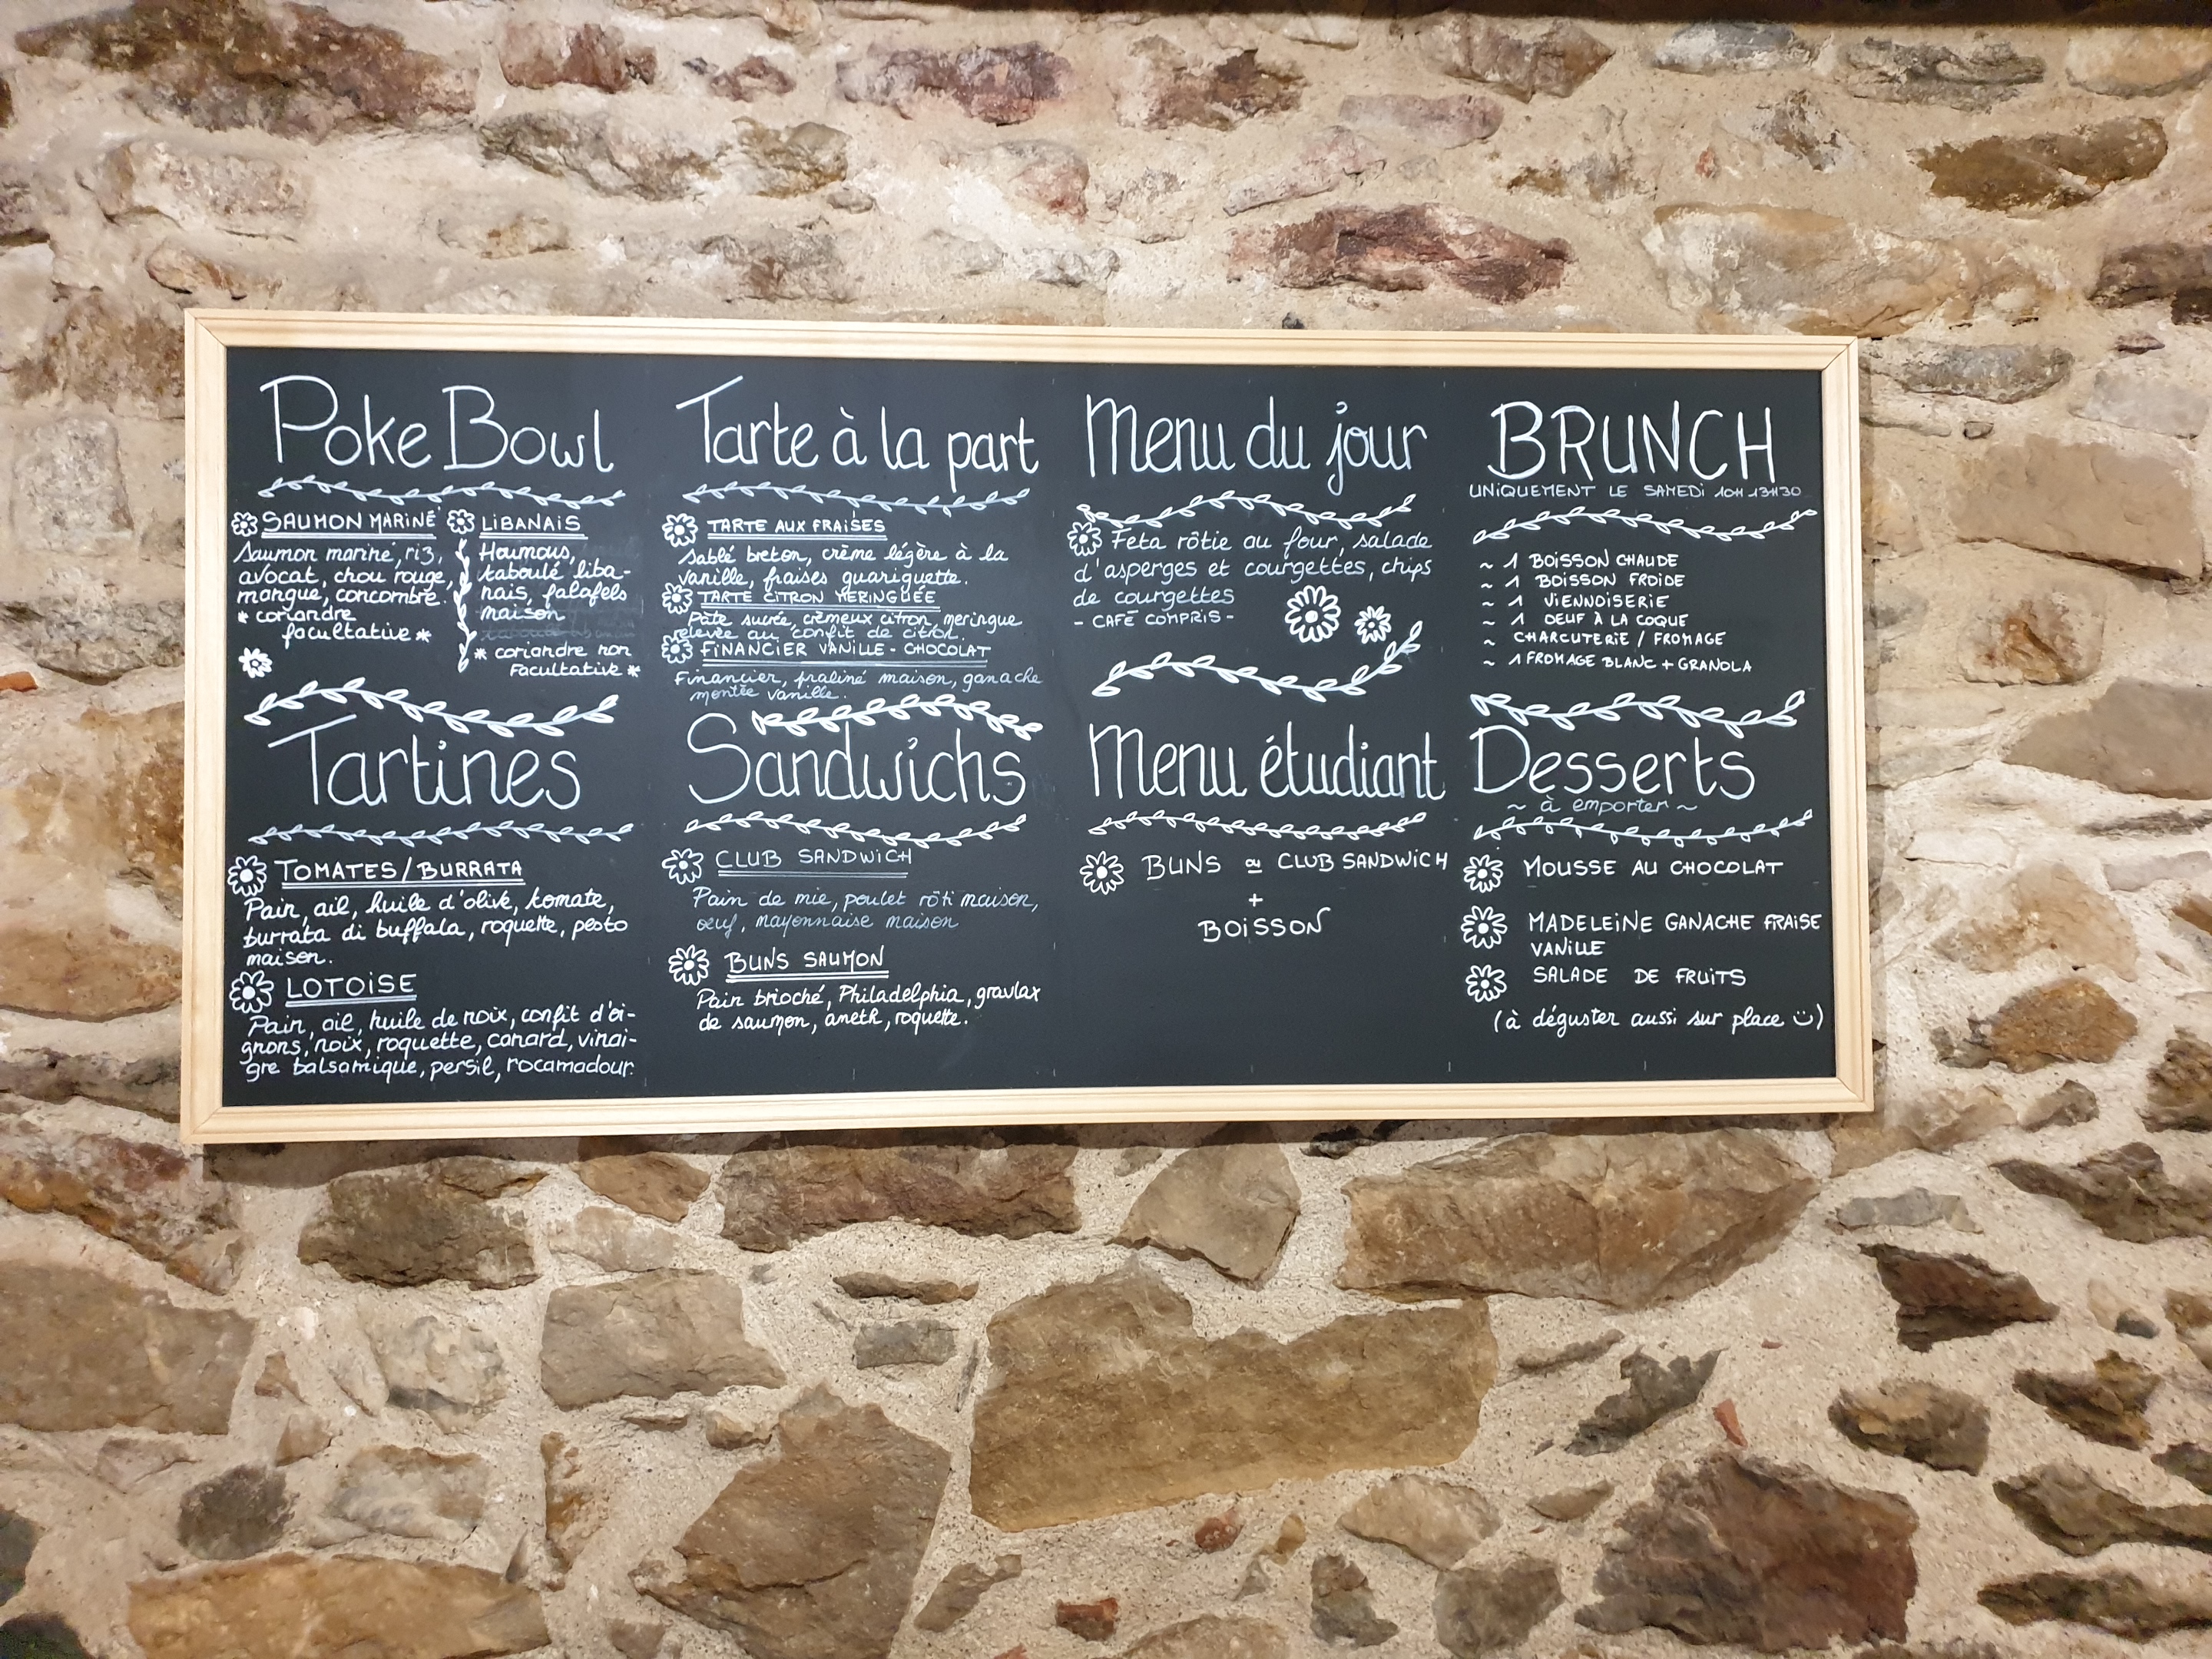 Poke Bowl
SAUMON MARINÉ
Saumon mariné, riz,
avocat, chou rouge,
mangue, concombre.
* coriandre
facultative *
LIBANAIS
Houmous,
taboulé liba-
nais, falafels
maison
* coriandre non
facultative *
Tarte à la part
TARTE AUX FRAISES
Sablé breton, crème légère à la
vanille, fraises guariguette.
TARTE CITRON MERINGUÉE
Pâte sucrée, crèmeux citron, meringue
relevée au confit de citron.
FINANCIER VANILLE - CHOCOLAT
Financier, praliné maison, ganache
montée vanille.
Menu du jour
Feta rôtie au four, salade
d'asperges et courgettes, chips
de courgettes
- CAFÉ COMPRIS -
BRUNCH
UNIQUEMENT LE SAMEDI 10H-13H30
~ 1 BOISSON CHAUDE
~ 1 BOISSON FROIDE
~ 1 VIENNOISERIE
~ 1 OEUF À LA COQUE
~ CHARCUTERIE / FROMAGE
~ 1 FROMAGE BLANC + GRANOLA
Tartines
TOMATES/BURRATA
Pain, ail, huile d'olive, tomate,
burrata di buffala, roquette, pesto
maison.
LOTOISE
Pain, ail, huile de noix, confit d'oi-
gnons, noix, roquette, canard, vinai-
gre balsamique, persil, rocamadour.
Sandwichs
CLUB SANDWICH
Pain de mie, poulet rôti maison,
oeuf, mayonnaise maison
BUNS SAUMON
Pain brioché, Philadelphia, gravlax
de saumon, aneth, roquette.
Menu étudiant
BUNS ou CLUB SANDWICH
+
BOISSON
Desserts
~ à emporter ~
MOUSSE AU CHOCOLAT
MADELEINE GANACHE FRAISE
VANILLE
SALADE DE FRUITS
(à déguster aussi sur place ☺)